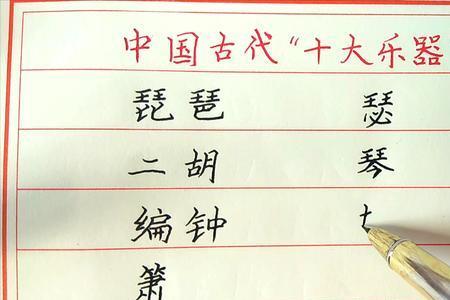 中国古代“十大乐器
琵琶 瑟
二胡 琴
编钟
箫